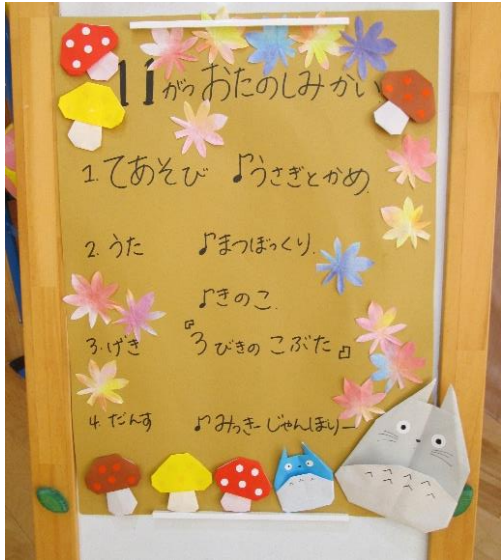 11がつ おたのしみかい
1. てあそび ♪うさぎとかめ
2. うた ♪まつぼっくり
♪きのこ
3. げき 『3びきの こぶた』
4. だんす ♪みっきーじゃんぼりー